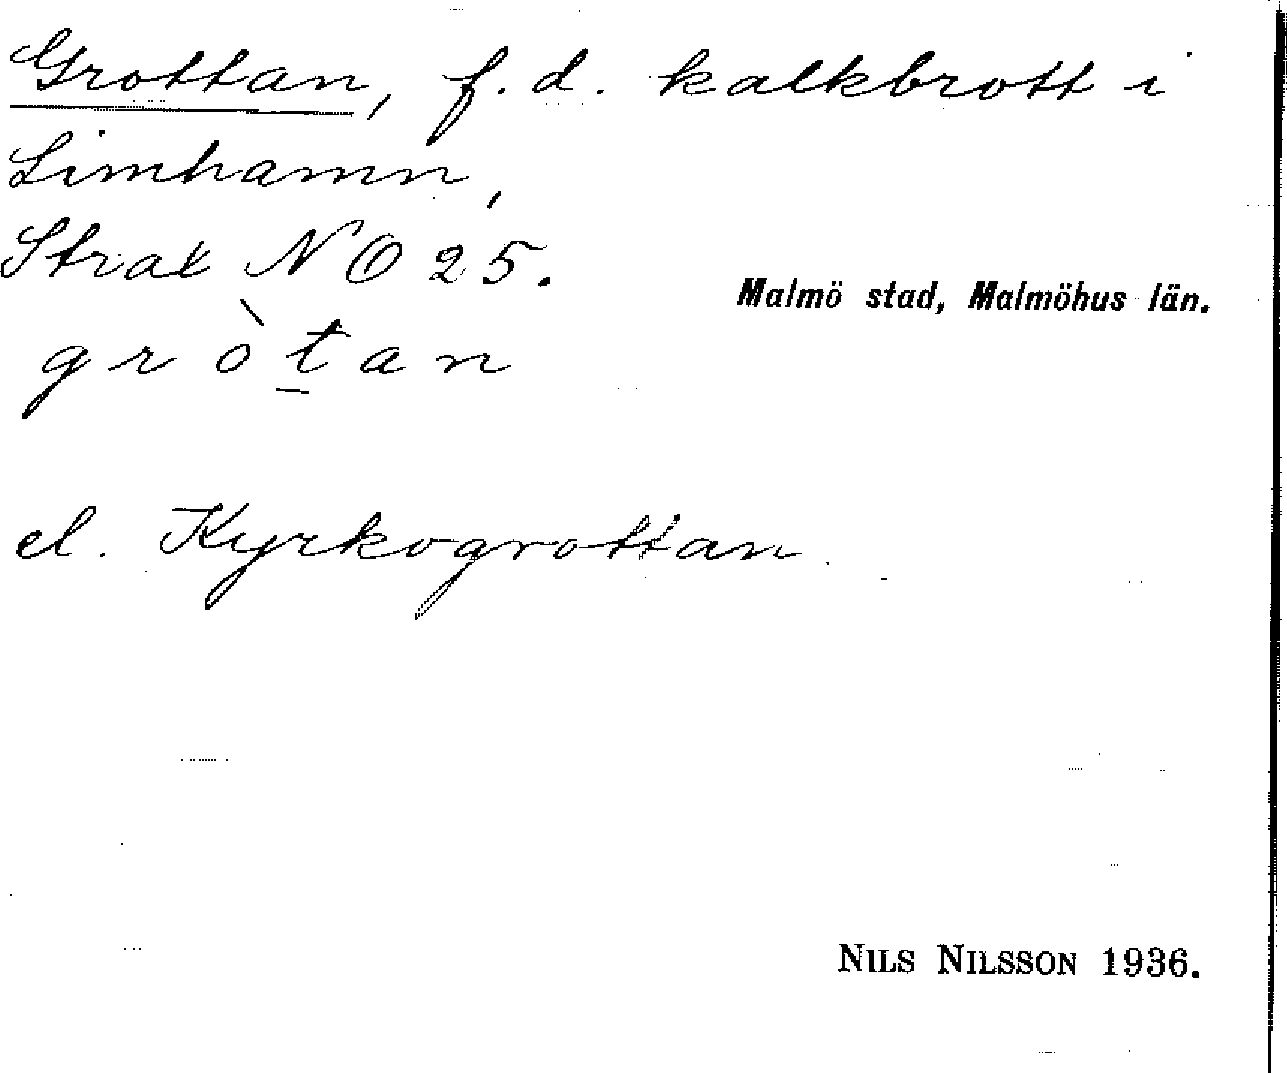 Grottan, f.d. kalkbrott i
Limhamn,
Strax NO 25.
Malmö stad, Malmöhus län.
gròt̲an
el. Kyrkogrottan.
NILS NILSSON 1936.